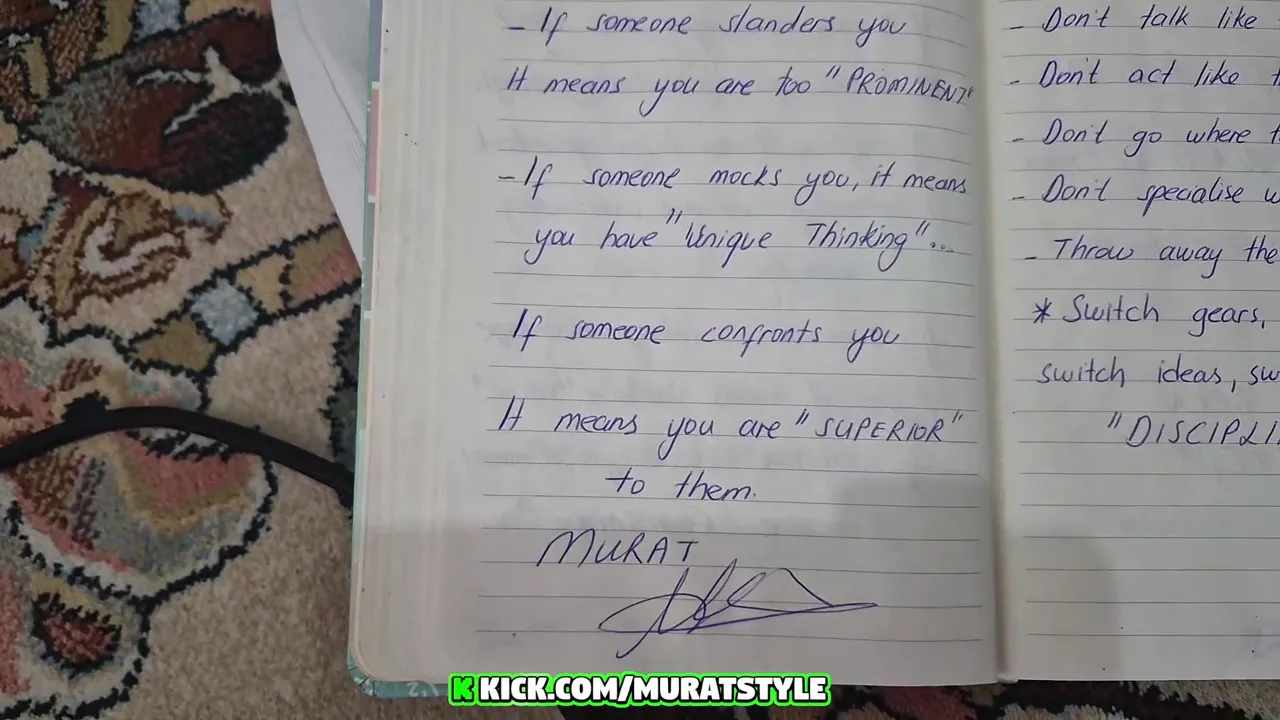 - If someone slanders you
It means you are too "PROMINENT"
- If someone mocks you, it means
you have "Unique Thinking"...
If someone confronts you
It means you are "SUPERIOR"
to them.
MURAT
- Don't talk like
- Don't act like
- Don't go where
- Don't specialise
- Throw away the
* Switch gears,
switch ideas,
KICK.COM/MURATSTYLE